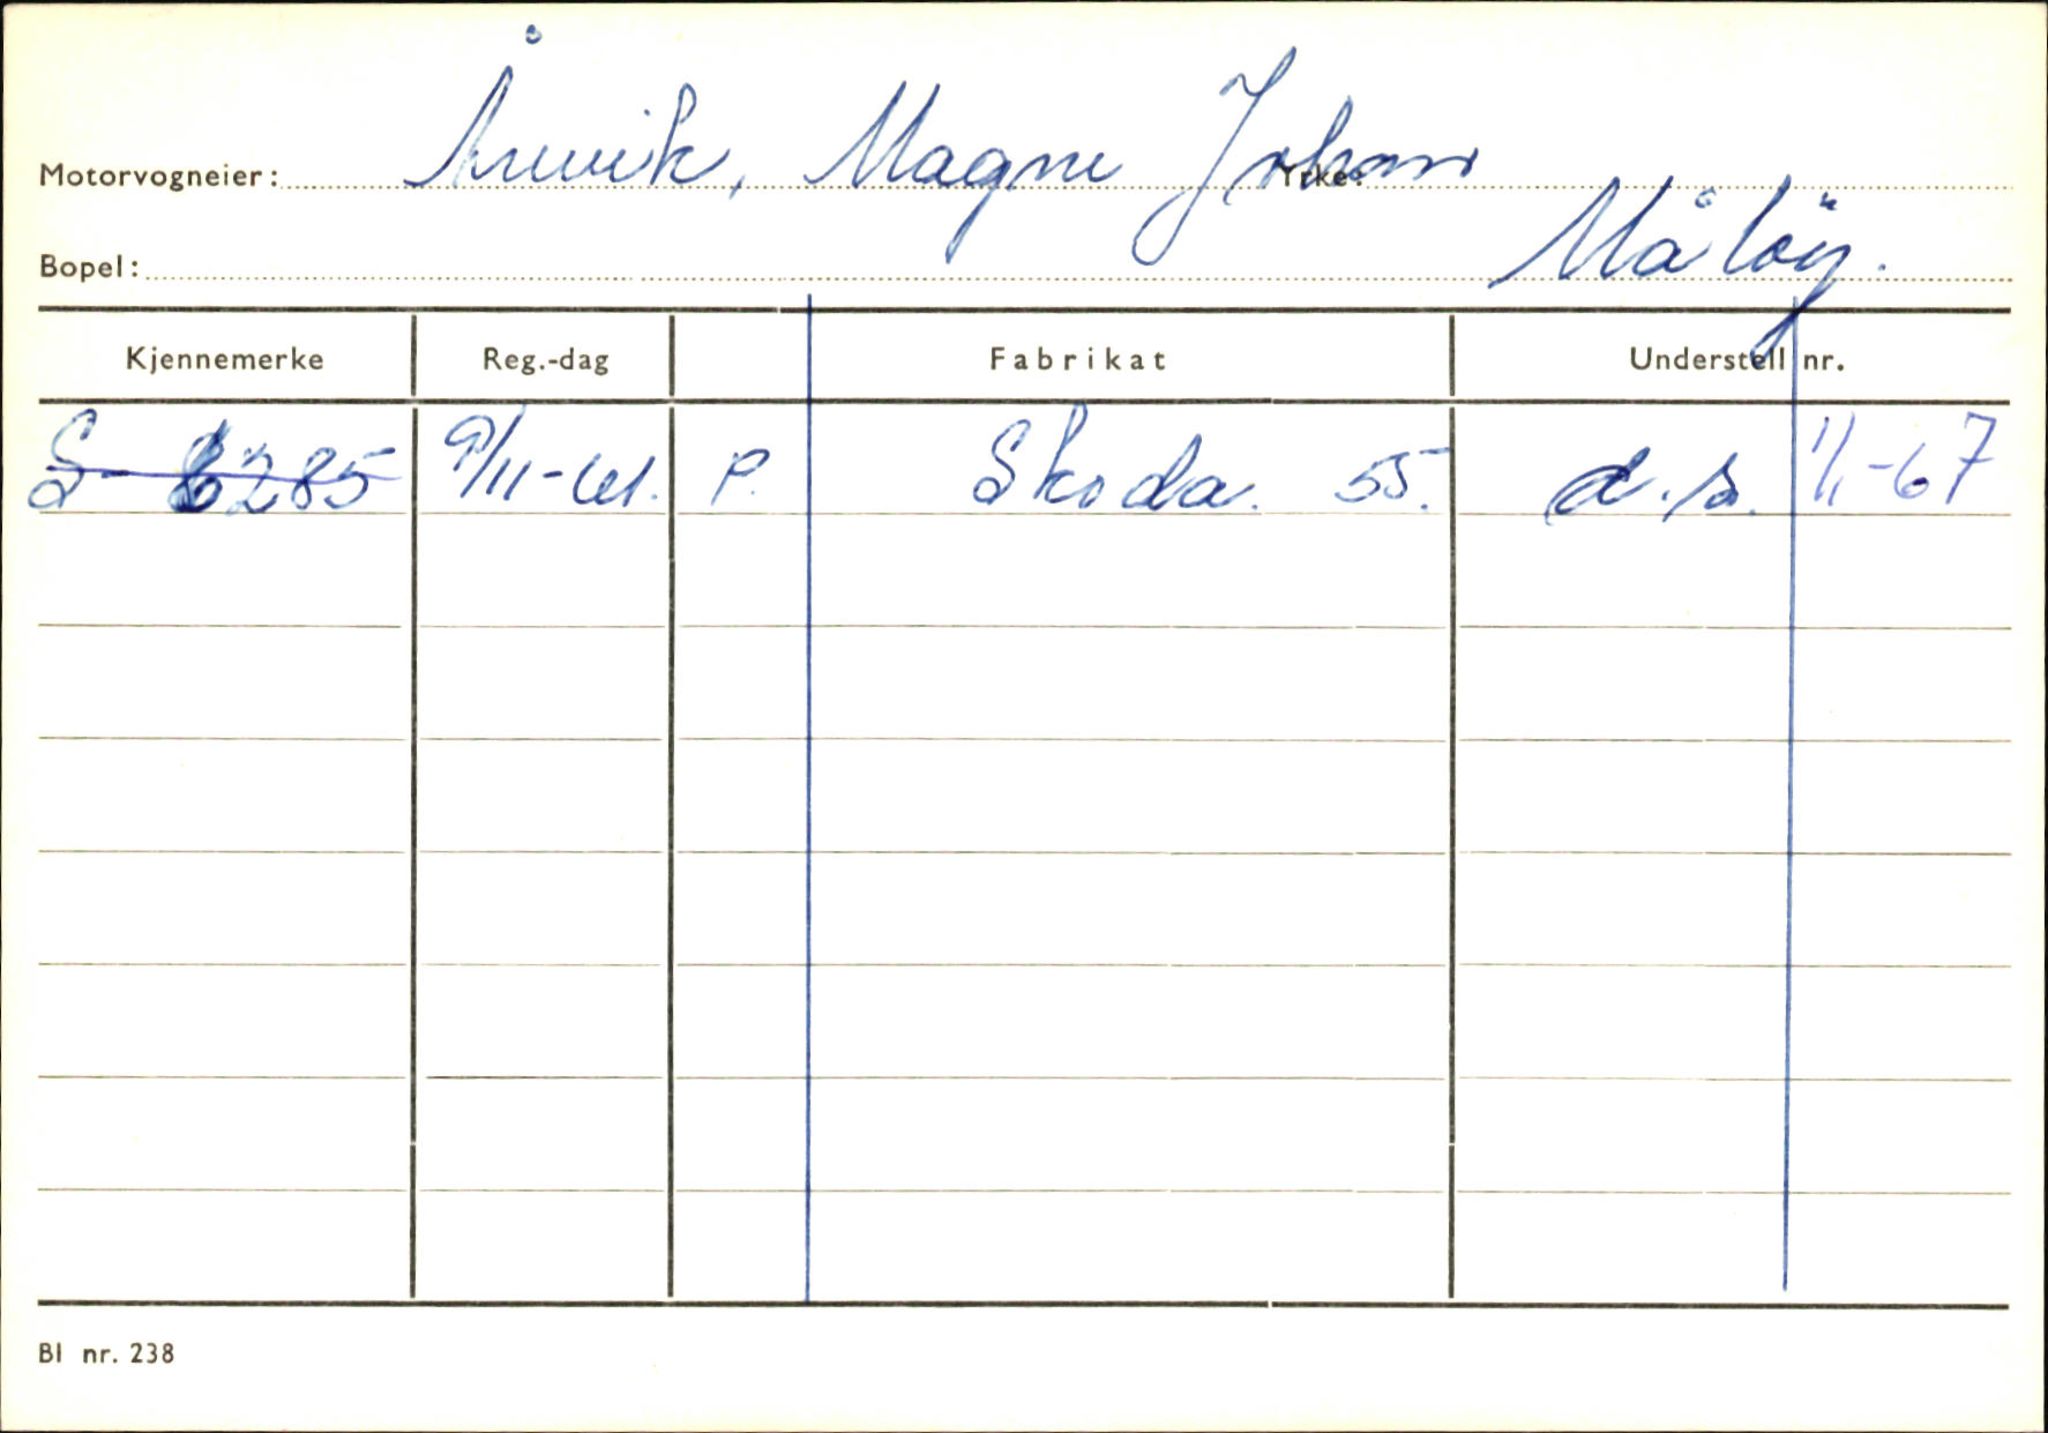 Motorvogneier: Årvik, Magne Johan Yrke:
Bopel: Måløy.
Kjennemerke Reg.-dag Fabrikat Understell nr.
S- 6285 9/11-61. P. Skoda. 55. d.s. 1/1-67
Bl nr. 238